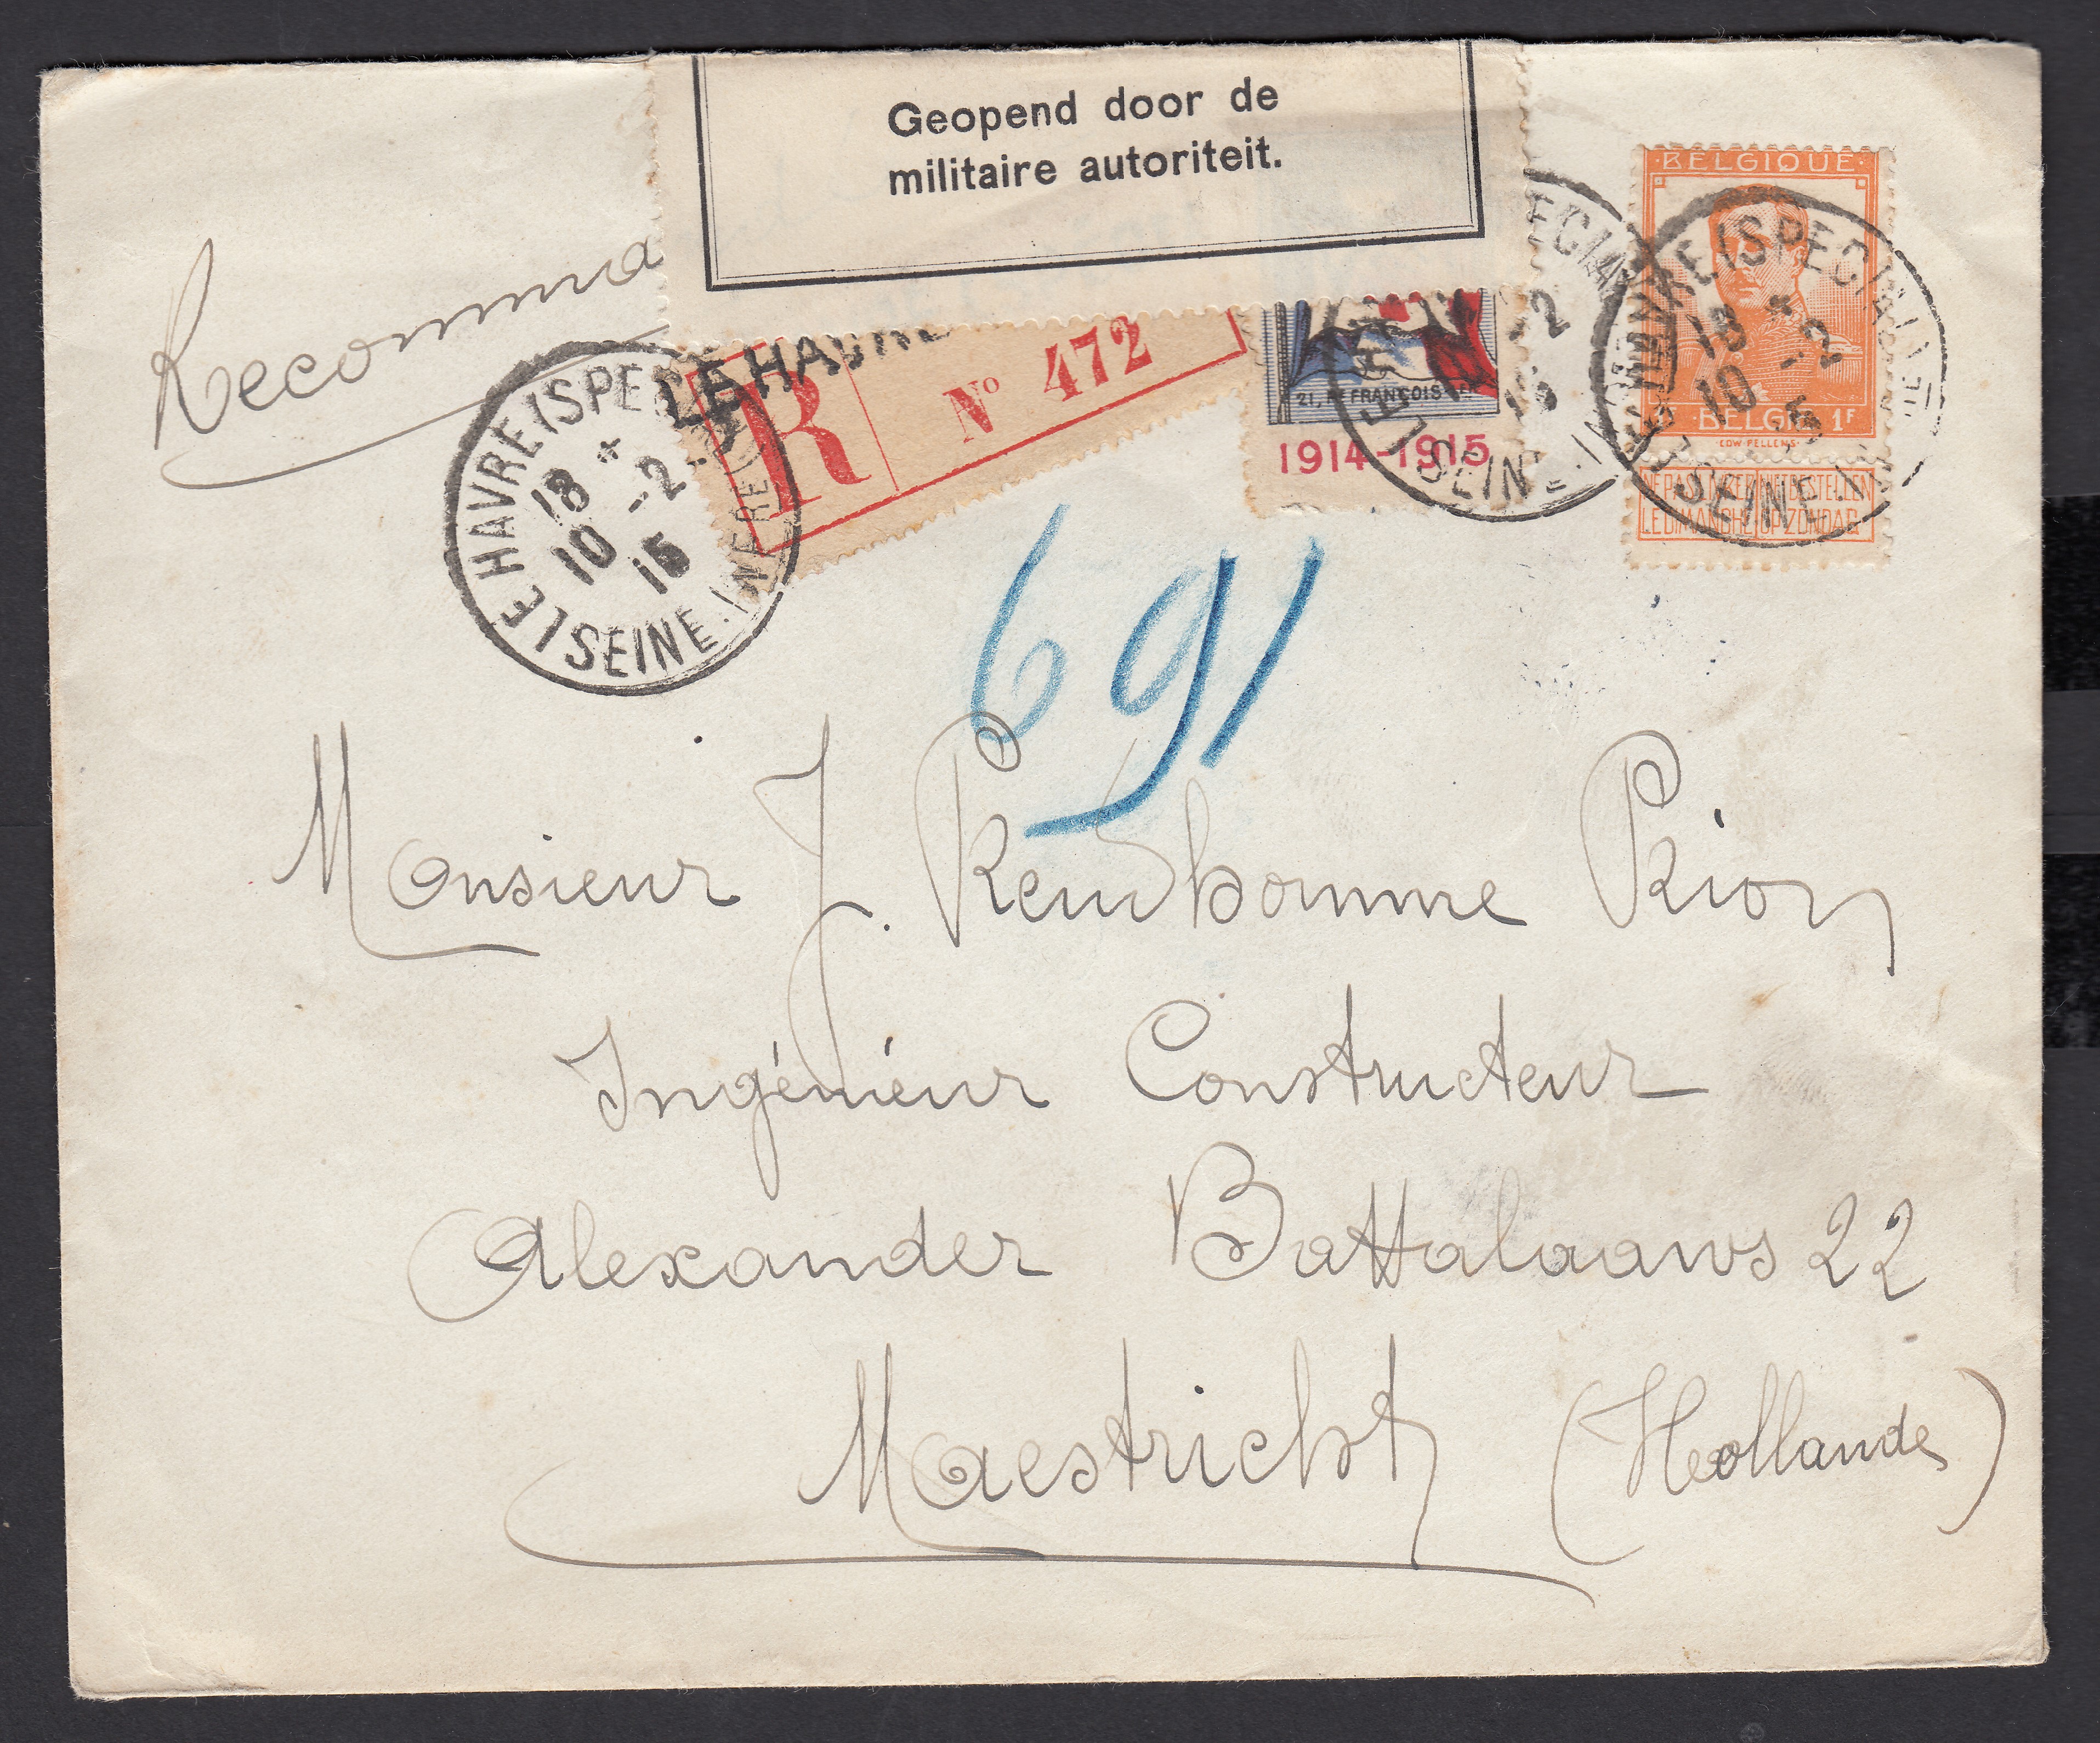 Geopend door de
militaire autoriteit.
Recomma
LE HAVRE
R
Nº 472
LE HAVRE (SPECIALE)
18 * 10 -2 15
(SEINE INFRE)
21, Rᵉ FRANÇOIS 1ᵉʳ
1914-1915
BELGIQUE
1F BELGIË 1F
EDW PELLENS
NE PAS LIVRER NIET BESTELLEN
LE DIMANCHE OP ZONDAG
LE HAVRE (SPECIALE)
18 * 10 -2 15
(SEINE INFRE)
691
Monsieur J. Remhomme Rion
Ingénieur Constructeur
Alexander Battalaans 22
Maestricht (Hollande)